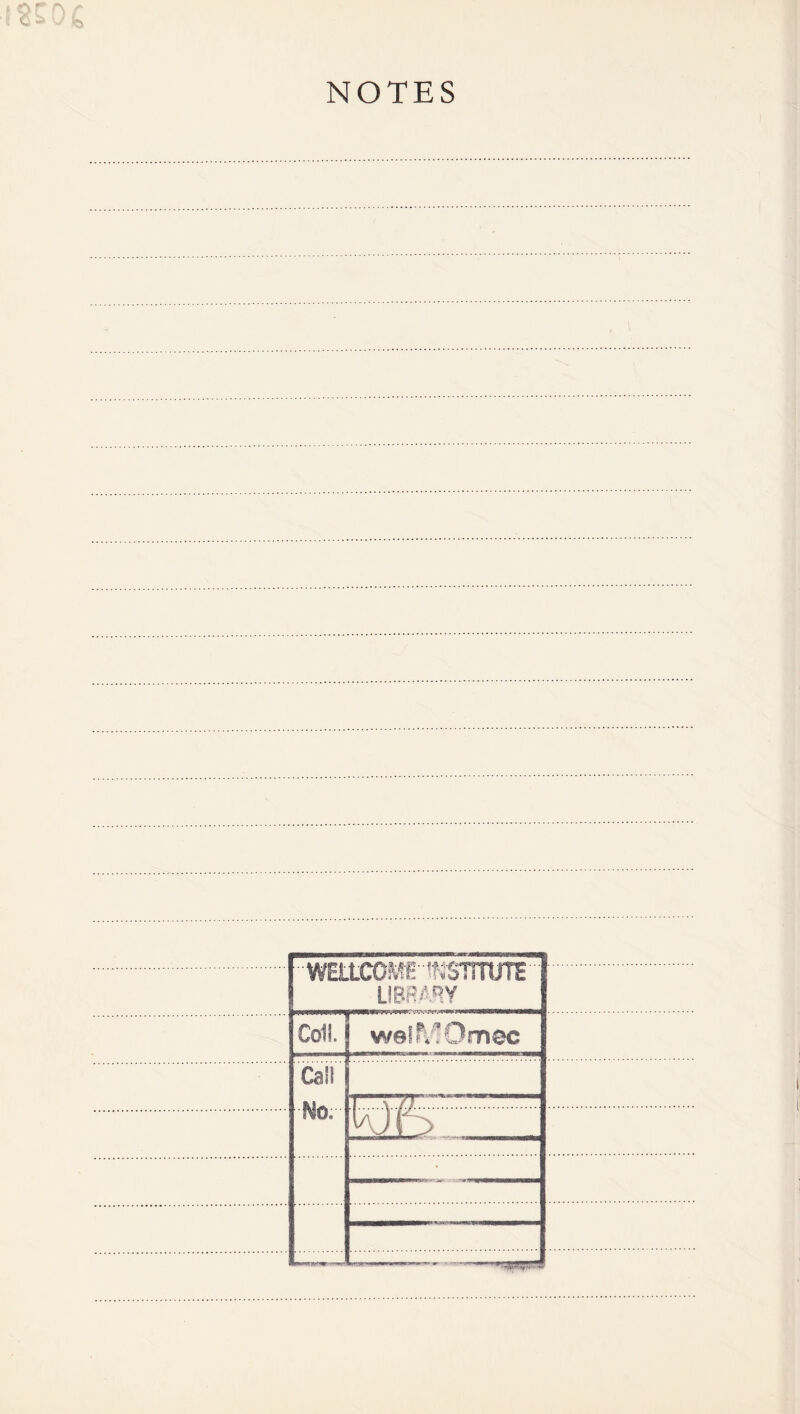 NOTES
WELLCOME INSTITUTE
LIBRARY
Coll. welMOmec
Call
No. WB